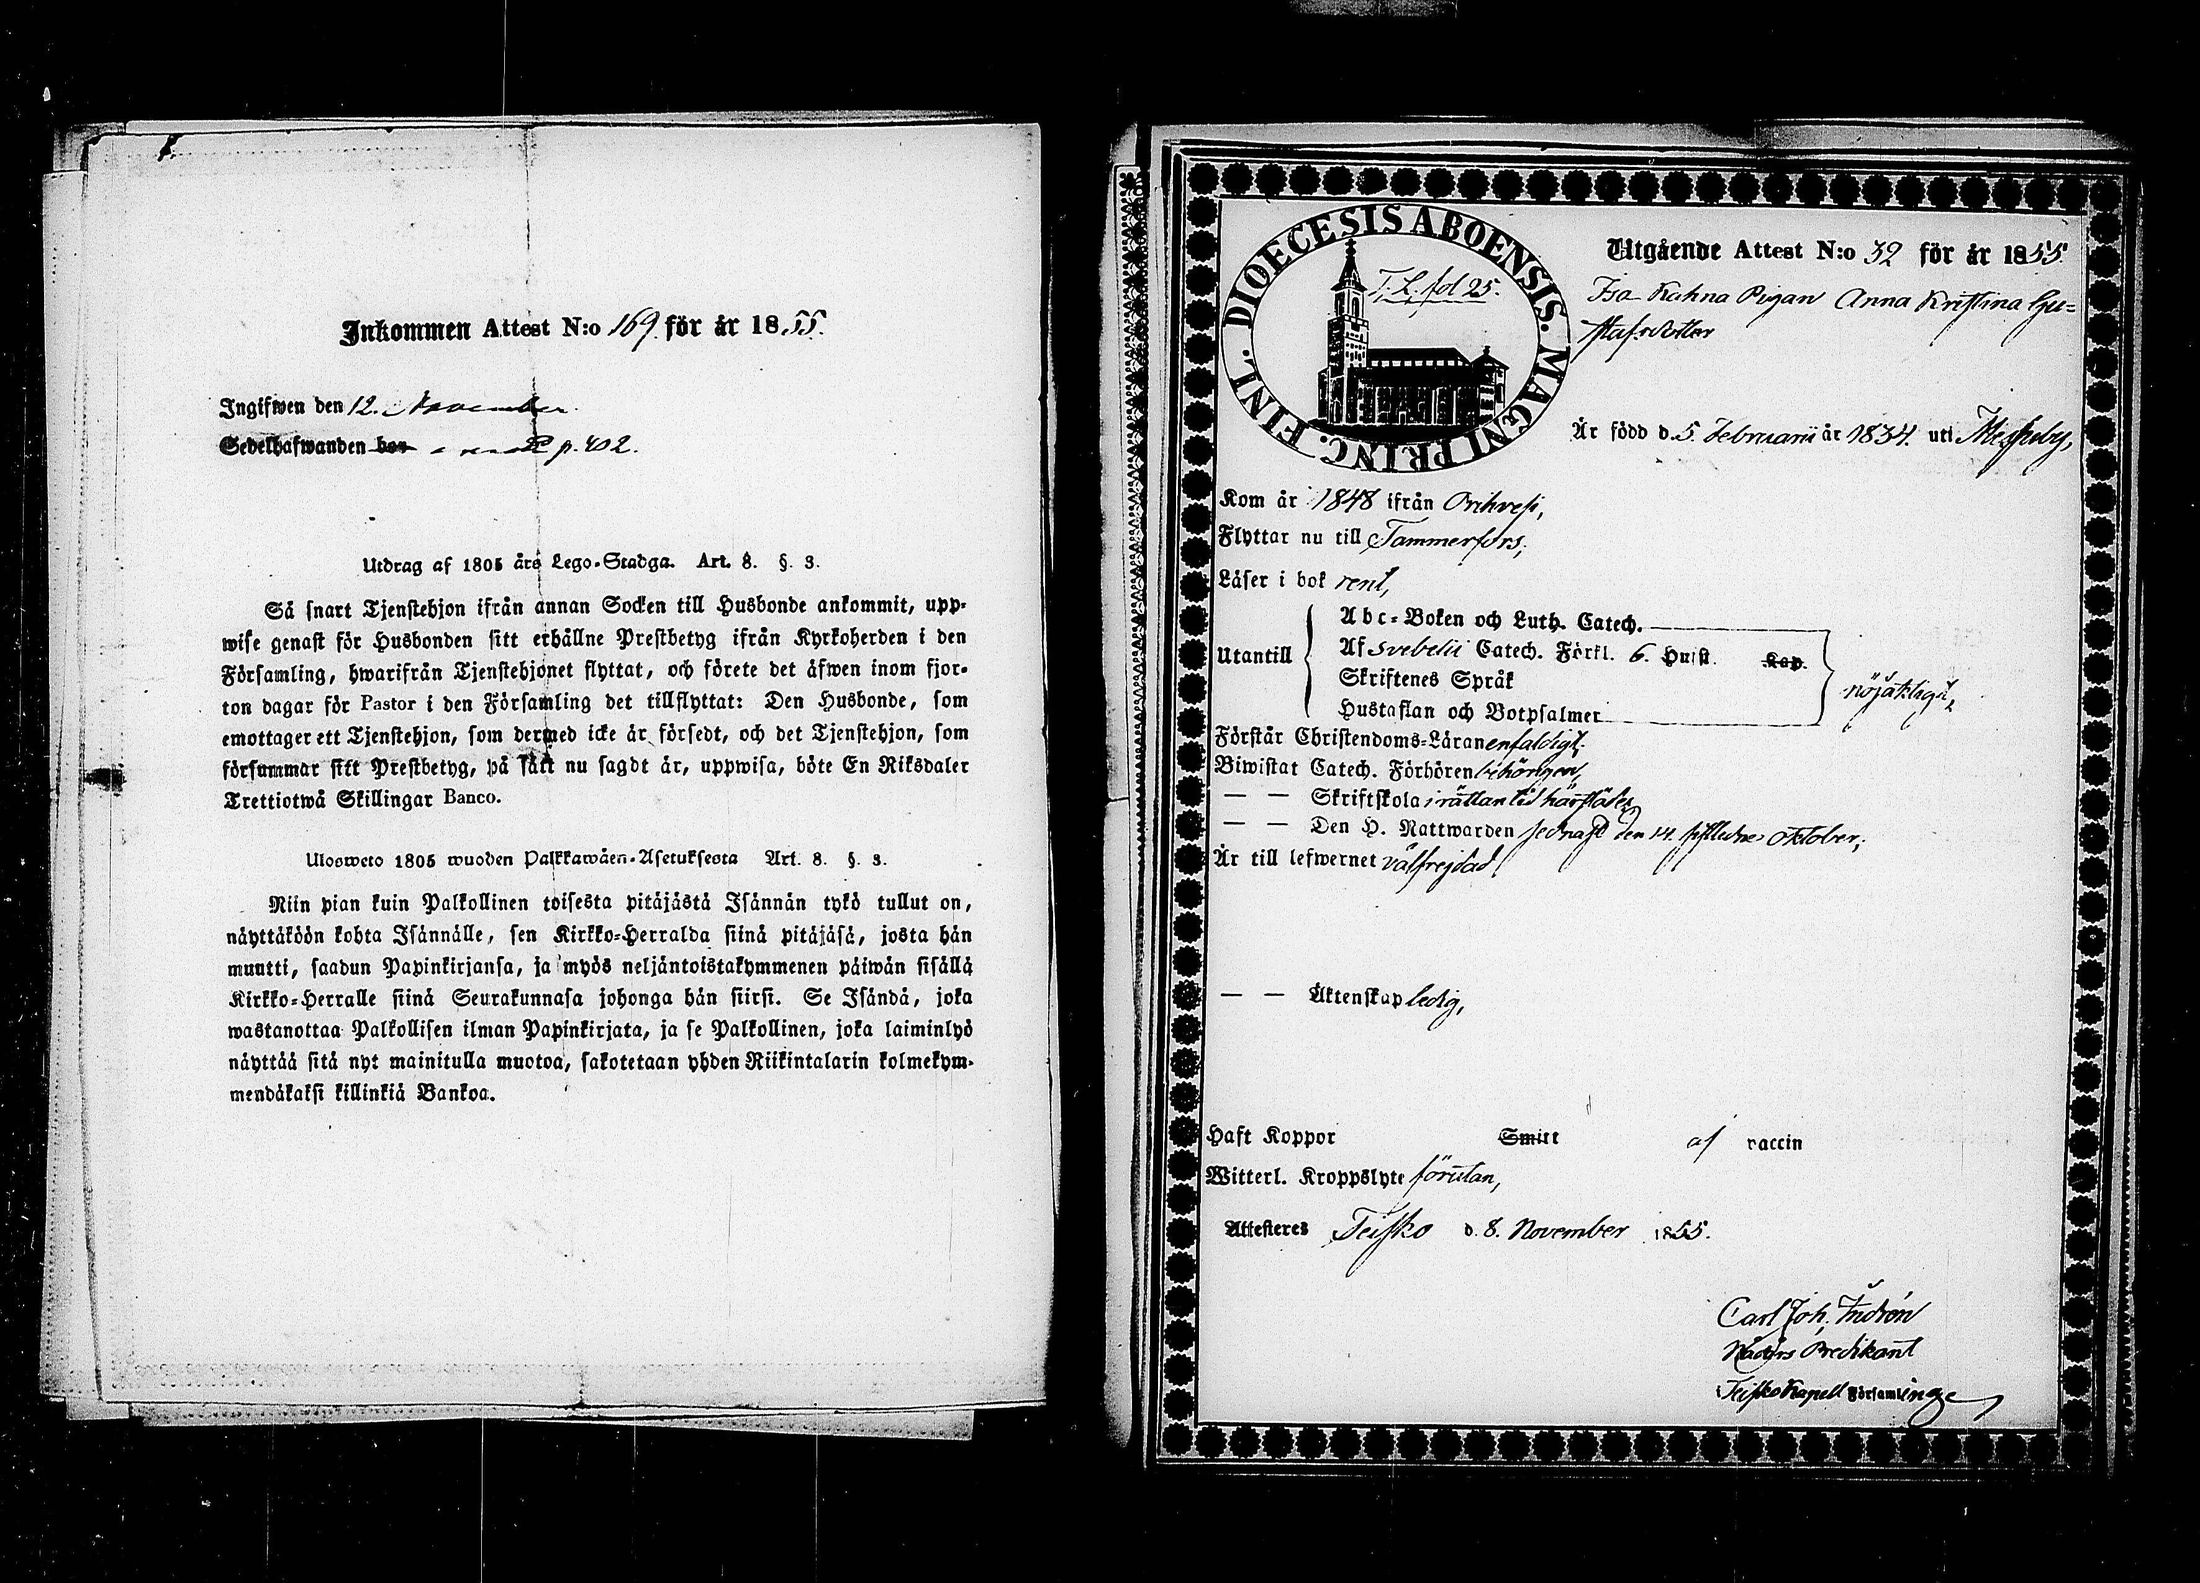 Inkommen Attest N:o 169. för år 1855.
Ingifwen den 12. November.
Sedelhafwanden bor p. 402.
Utdrag af 1805 års Lego-Stadga. Art. 8. §. 3.
Så snart Tjenstehjon ifrån annan Socken till Husbonde ankommit, upp-
wise genast för Husbonden sitt erhållne Prestbetyg ifrån Kyrkoherden i den
Församling, hwarifrån Tjenstehjonet flyttat, och förete det äfwen inom fjor-
ton dagar för Pastor i den Församling det tillflyttat: Den Husbonde, som
emottager ett Tjenstehjon, som dermed icke är försedt, och det Tjenstehjon, som
försummar sitt Prestbetyg, på sätt nu sagdt är, uppwisa, böte En Riksdaler
Trettiotwå Skillingar Banco.
Ulosweto 1805 wuoden Palkkawäen-Asetuksesta Art. 8. §. 3.
Niin pian kuin Palkollinen toisesta pitäjästä Isännän tykö tullut on,
näyttäköön kohta Isännälle, sen Kirkko-Herralda siinä pitäjäsä, josta hän
muutti, saadun Papinkirjansa, ja myös neljäntoistakymmenen päiwän sisällä
Kirkko-Herralle siinä Seurakunnasa johonga hän siirsi. Se Isändä, joka
wastanottaa Palkollisen ilman Papinkirjata, ja se Palkollinen, joka laiminlyö
näyttää sitä nyt mainitulla muotoa, sakotetaan yhden Riikintalarin kolmekym-
mendäkaksi killinkiä Bankoa.
DIOECESIS ABOENSIS. MAGNI PRINC. FINL.
T. L. fol 25.
Utgående Attest N:o 32 för år 1855
Isa Kahna Pigan Anna Kristina Gu-
stafsdotter
Är född d. 5. Februarii år 1834. uti Messuby,
Kom år 1848 ifrån Orihvesi,
Flyttar nu till Tammerfors,
Läser i bok rent,
Utantill
Abc-Boken och Luth. Catech.
Af Svebelii Catech. Förkl. 6. Hufst. Kap.
Skriftenes Språk
Hustaflan och Botpsalmer
nöjaktigt,
Förstår Christendoms-Läran enfaldigt,
Biwistat Catech. Förhören behörigen,
— — Skriftskola i rättan tid härstädes,
— — Den H. Nattwarden sednast den 14. sistledne oktober,
Är till lefwernet välfrejdad,
— — Äktenskap ledig,
Haft Koppor Smitt af vaccin
Witterl. Kroppslyte förutan,
Attesteres Teisko d. 8. November 1855.
Carl Joh.
Predikant
Teisko Kapell Församlinge